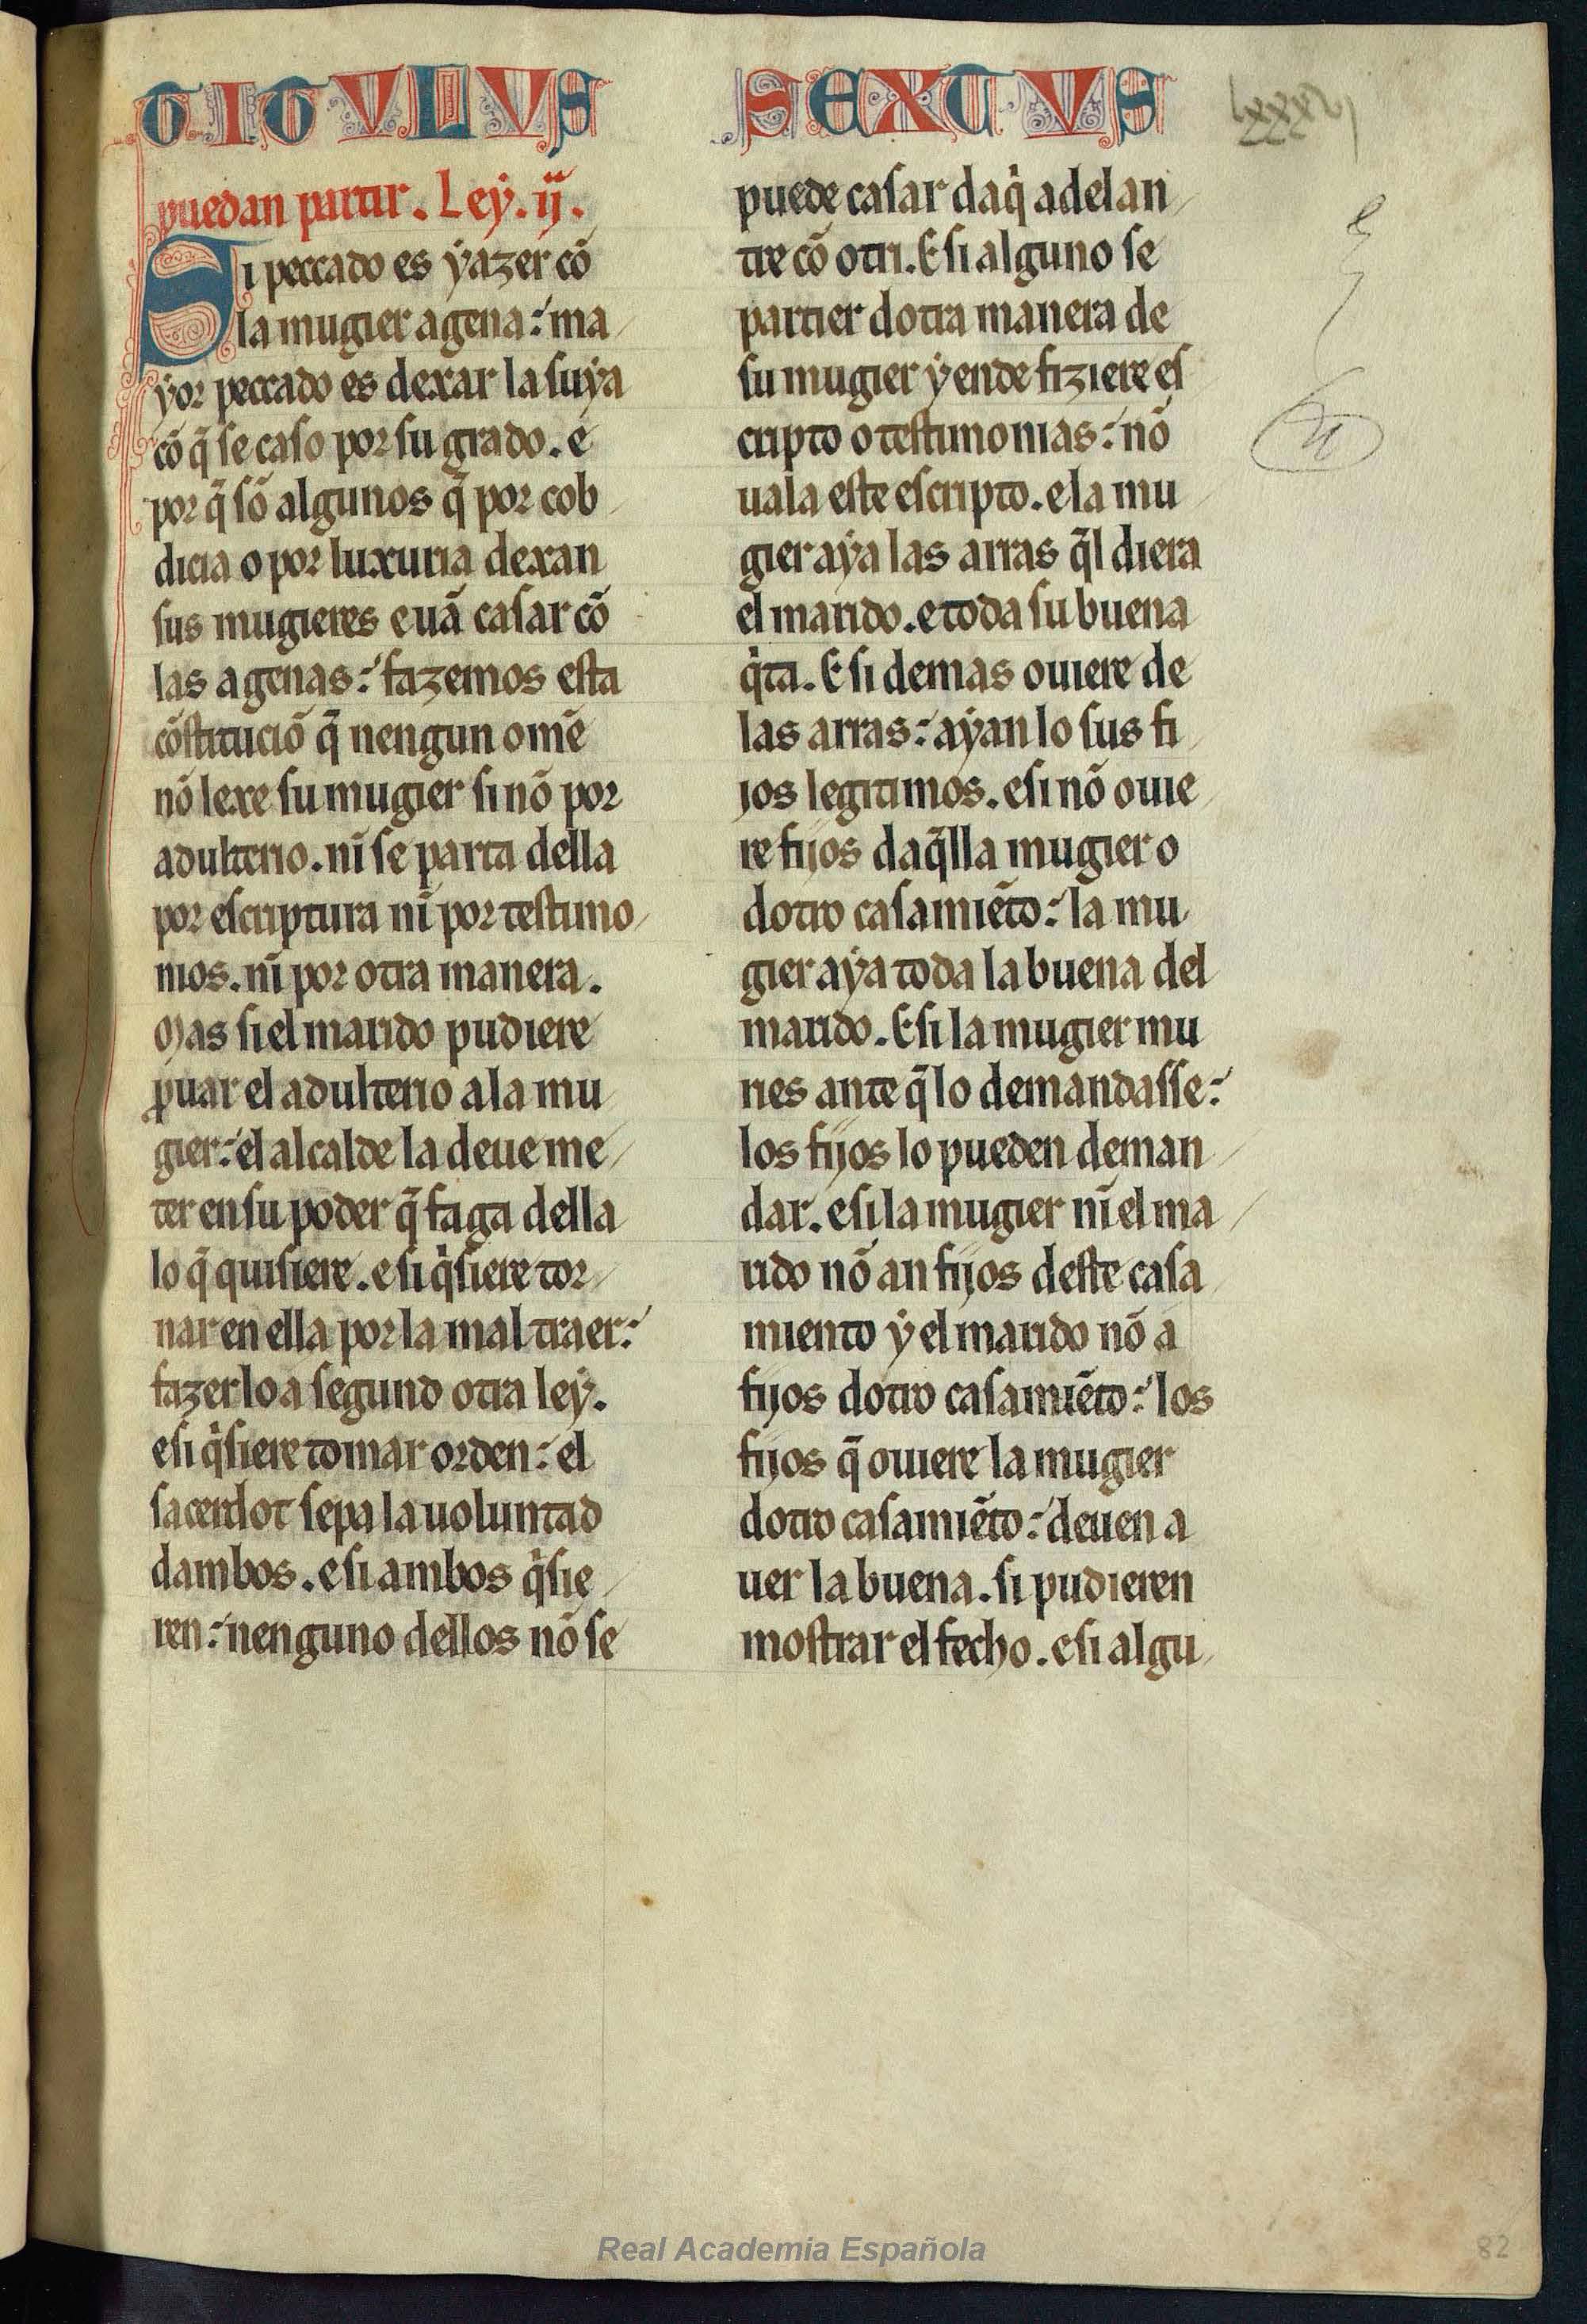 TITULUS SEXTUS
lxxxvj
puedan partir. Ley. ij.
Si peccado es yazer cõ
la mugier agena: ma
yor peccado es dexar la suya
cõ q̃ se caso por su grado. e
por q̃ sõ algunos q̃ por cob
dicia o por luxuria dexan
sus mugieres e uã casar cõ
las agenas: fazemos esta
cõstituciõ q̃ nengun omẽ
nõ lexe su mugier si nõ por
adulterio. nĩ se parta della
por escriptura nĩ por testimo
nios. nĩ por otra manera.
Mas si el marido pudiere
ꝓuar el adulterio a la mu
gier: el alcalde la deue me
ter en su poder q̃ faga della
lo q̃ quisiere. e si qͥsiere tor
nar en ella por la mal traer:
fazer lo a segund otra ley.
e si qͥsiere tomar orden: el
sacerdot sepa la uoluntad
dambos. e si ambos qͥsie
ren: nenguno dellos nõ se
puede casar daqͥ adelan
tre cõ otri. E si alguno se
partier dotra manera de
su mugier y ende fiziere es
cripto o testimonias: nõ
uala este escripto. e la mu
gier aya las arras q̃l diera
el marido. e toda su buena
qͥta. E si demas ouiere de
las arras: ayan lo sus fi
jos legitimos. e si nõ ouie
re fijos daq̃lla mugier o
dotro casamiẽto: la mu
gier aya toda la buena del
marido. E si la mugier mu
ries ante q̃ lo demandasse:
los fijos lo pueden deman
dar. e si la mugier nĩ el ma
rido nõ an fijos deste casa
miento y el marido nõ a
fijos dotro casamiẽto: los
fijos q̃ ouiere la mugier
dotro casamiẽto: deuen a
uer la buena. si pudieren
mostrar el fecho. e si algu
Real Academia Española
82